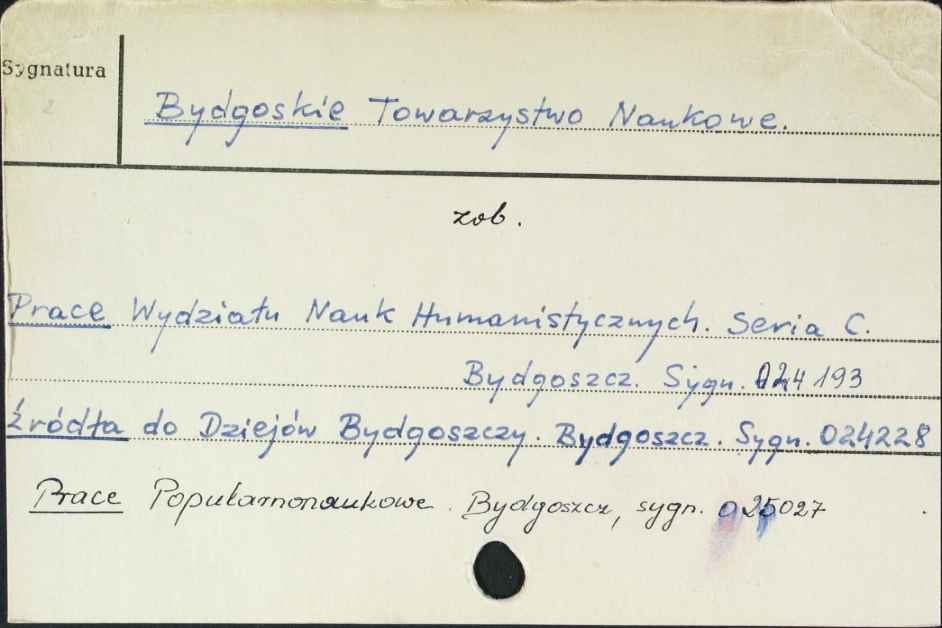 Sygnatura
2
Bydgoskie Towarzystwo Naukowe.
zob.
Prace Wydziału Nauk Humanistycznych. Seria C.
Bydgoszcz. Sygn. 024193
Źródła do Dziejów Bydgoszczy. Bydgoszcz. Sygn. 024228
Prace Popularnonaukowe. Bydgoszcz, sygn. 025027